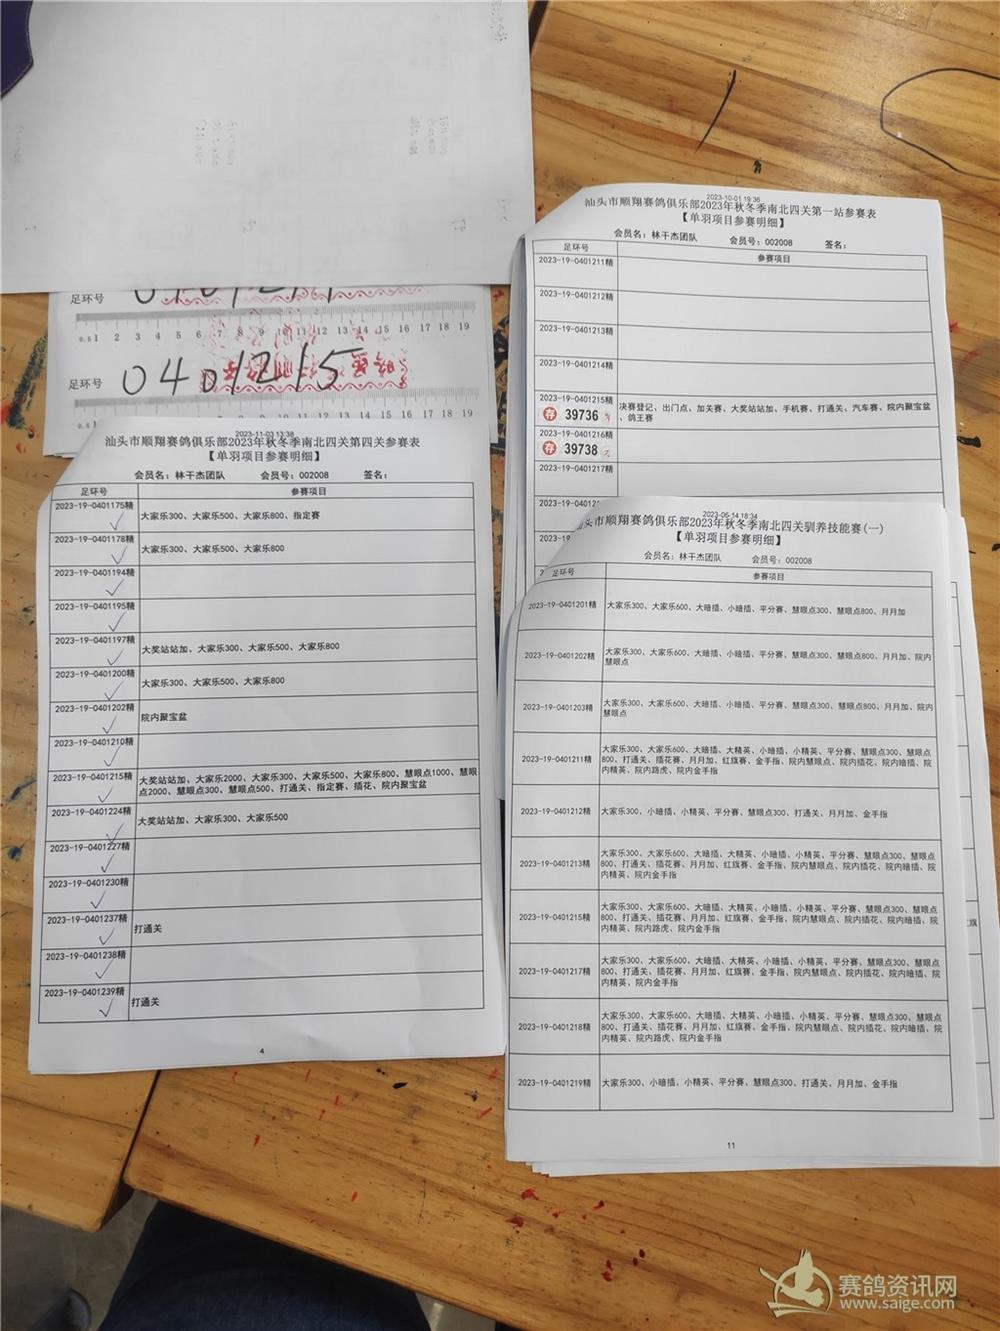 足环号
0.5 1 2 3 4 5 6 7 8 9 10 11 12 13 14 15 16 17 18 19
足环号 0401215
2023-11-03 13:38
汕头市顺翔赛鸽俱乐部2023年秋冬季南北四关第四关参赛表
【单羽项目参赛明细】
会员名：林干杰团队 会员号：002008 签名：
足环号 参赛项目
2023-19-0401175精 大家乐300、大家乐500、大家乐800、指定赛
2023-19-0401178精 大家乐300、大家乐500、大家乐800
2023-19-0401194精
2023-19-0401195精
2023-19-0401197精 大奖站站加、大家乐300、大家乐500、大家乐800
2023-19-0401200精 大家乐300、大家乐500、大家乐800
2023-19-0401202精 院内聚宝盆
2023-19-0401210精
2023-19-0401215精 大奖站站加、大家乐2000、大家乐300、大家乐500、大家乐800、慧眼点1000、慧眼
点2000、慧眼点300、慧眼点500、打通关、指定赛、插花、院内聚宝盆
2023-19-0401224精 大奖站站加、大家乐300、大家乐500
2023-19-0401227精
2023-19-0401230精
2023-19-0401237精 打通关
2023-19-0401238精
2023-19-0401239精 打通关
4
2023-10-01 19:36
汕头市顺翔赛鸽俱乐部2023年秋冬季南北四关第一站参赛表
【单羽项目参赛明细】
会员名：林干杰团队 会员号：002008 签名：
足环号 参赛项目
2023-19-0401211精
2023-19-0401212精
2023-19-0401213精
2023-19-0401214精
2023-19-0401215精 决赛登记、出门点、加关赛、大奖站站加、手机赛、打通关、汽车赛、院内聚宝盆
、鸽王赛
荐 39736
2023-19-0401216精
荐 39738
2023-19-0401217精
2023-06-14 18:34
汕头市顺翔赛鸽俱乐部2023年秋冬季南北四关驯养技能赛(一)
【单羽项目参赛明细】
会员名：林干杰团队 会员号：002008
足环号 参赛项目
2023-19-0401201精 大家乐300、大家乐600、大暗插、小暗插、平分赛、慧眼点300、慧眼点800、月月加
2023-19-0401202精 大家乐300、大家乐600、大暗插、小暗插、平分赛、慧眼点300、慧眼点800、月月加、院内
慧眼点
2023-19-0401203精 大家乐300、大家乐600、大暗插、小暗插、平分赛、慧眼点300、慧眼点800、月月加、院内
慧眼点
2023-19-0401211精 大家乐300、大家乐600、大暗插、大精英、小暗插、小精英、平分赛、慧眼点300、慧眼点
800、打通关、插花赛、月月加、红旗赛、金手指、院内慧眼点、院内插花、院内暗插、院
内精英、院内路虎、院内金手指
2023-19-0401212精 大家乐300、小暗插、小精英、平分赛、慧眼点300、打通关、月月加、金手指
2023-19-0401213精 大家乐300、大家乐600、大暗插、大精英、小暗插、小精英、平分赛、慧眼点300、慧眼点
800、打通关、插花赛、月月加、红旗赛、金手指、院内慧眼点、院内插花、院内暗插、院
内精英、院内金手指
2023-19-0401215精 大家乐300、大家乐600、大暗插、大精英、小暗插、小精英、平分赛、慧眼点300、慧眼点
800、打通关、插花赛、月月加、红旗赛、金手指、院内慧眼点、院内插花、院内暗插、院
内精英、院内路虎、院内金手指
2023-19-0401217精 大家乐300、大家乐600、大暗插、大精英、小暗插、小精英、平分赛、慧眼点300、慧眼点
800、打通关、插花赛、月月加、红旗赛、金手指、院内慧眼点、院内插花、院内暗插、院
内精英、院内金手指
2023-19-0401218精 大家乐300、大家乐600、大暗插、大精英、小暗插、小精英、平分赛、慧眼点300、慧眼点
800、打通关、插花赛、月月加、红旗赛、金手指、院内慧眼点、院内插花、院内暗插、院
内精英、院内路虎、院内金手指
2023-19-0401219精 大家乐300、小暗插、小精英、平分赛、慧眼点300、打通关、月月加、金手指
11
赛鸽资讯网
www.saige.com